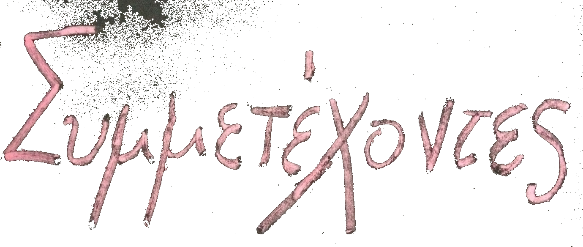 Συμμετέχοντες